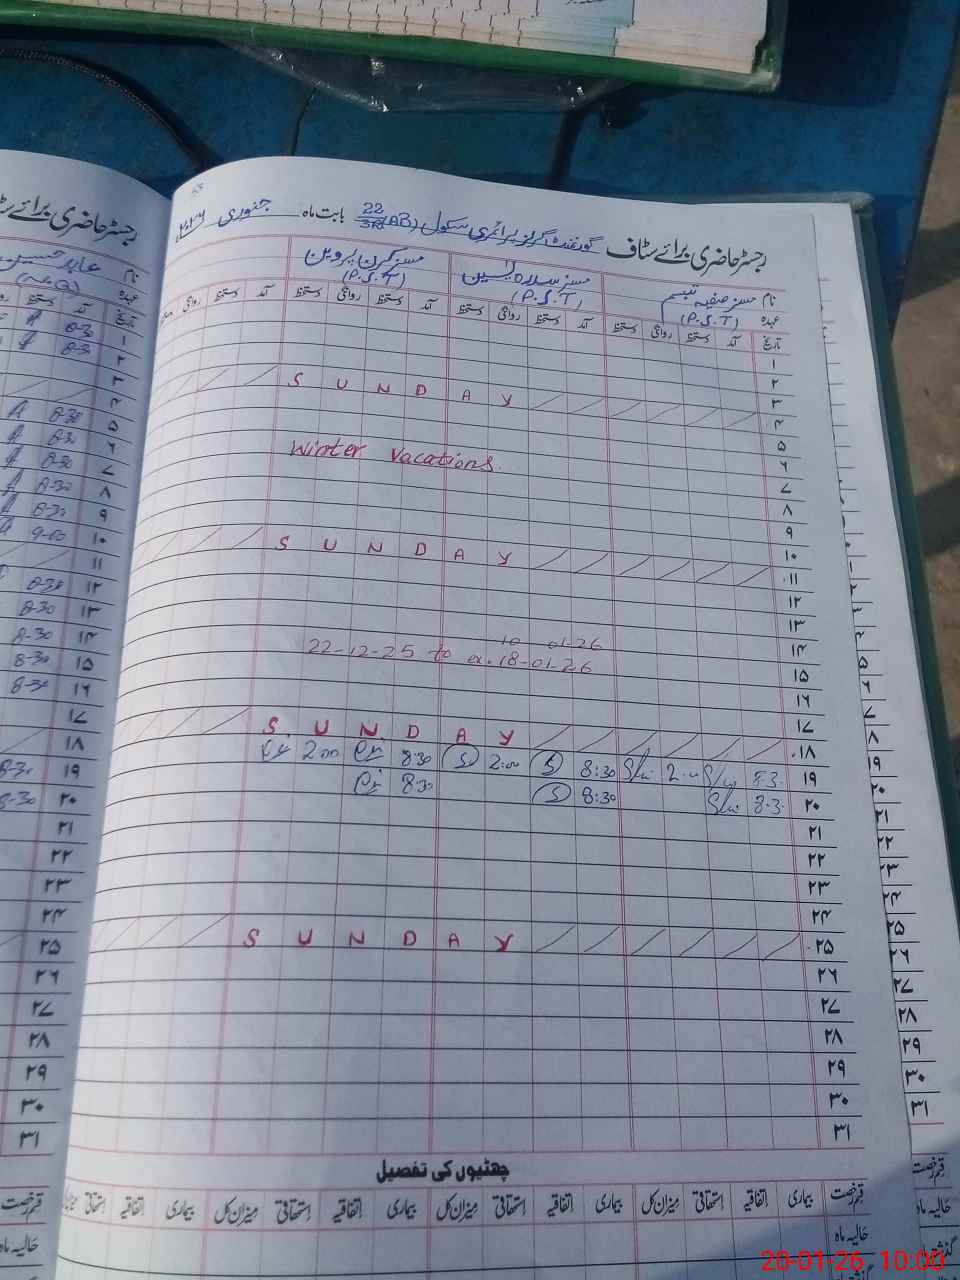 رجسٹر حاضری برائے سٹاف گورنمنٹ گرلز پرائمری سکول 22/3R(AB) بابت ماہ جنوری ۲۰۲۶
نام مسز صفیہ تبسم مسز سدرہ یٰسین مسز کرن پروین
عہدہ (P.S.T) (P.S.T) (P.S.T)
تاریخ آمد دستخط روانگی دستخط آمد دستخط روانگی دستخط آمد دستخط روانگی دستخط آمد دستخط روانگی
۱
۲
۳
۴ SUNDAY
۵
۶
Winter Vacations.
۷
۸
۹
۱۰
۱۱ SUNDAY
۱۲
۱۳
۱۴
10-01-26
22-12-25 to ex. 18-01-26
۱۵
۱۶
۱۷
۱۸ SUNDAY
۱۹ 8:3. 2.00 8:30 2:00 8:30 2:00
۲۰ 8:3. 8:30 8:30
۲۱
۲۲
۲۳
۲۴
۲۵ SUNDAY
۲۶
۲۷
۲۸
۲۹
۳۰
۳۱
چھٹیوں کی تفصیل
قسم رخصت بیماری اتفاقیہ استحقاقی میزان کل بیماری اتفاقیہ استحقاقی میزان کل بیماری اتفاقیہ استحقاقی میزان کل بیماری اتفاقیہ استحقاقی
حالیہ ماہ
گذشتہ ماہ
رجسٹر حاضری برائے
نام عابد حسین
عہدہ
تاریخ آمد دستخط
۱ 8-30
۲ 8-30
۳
۴
۵ 8-30
۶ 8-30
۷ 8-30
۸ 8-30
۹ 8-30
۱۰ 9-00
۱۱
۱۲ 8-30
۱۳ 8-30
۱۴ 8-30
۱۵ 8-30
۱۶ 8-30
۱۷
۱۸
۱۹ 8-30
۲۰ 8-30
۲۱
۲۲
۲۳
۲۴
۲۵
۲۶
۲۷
۲۸
۲۹
۳۰
۳۱
قسم رخصت
حالیہ ماہ
20-01-26 10:00